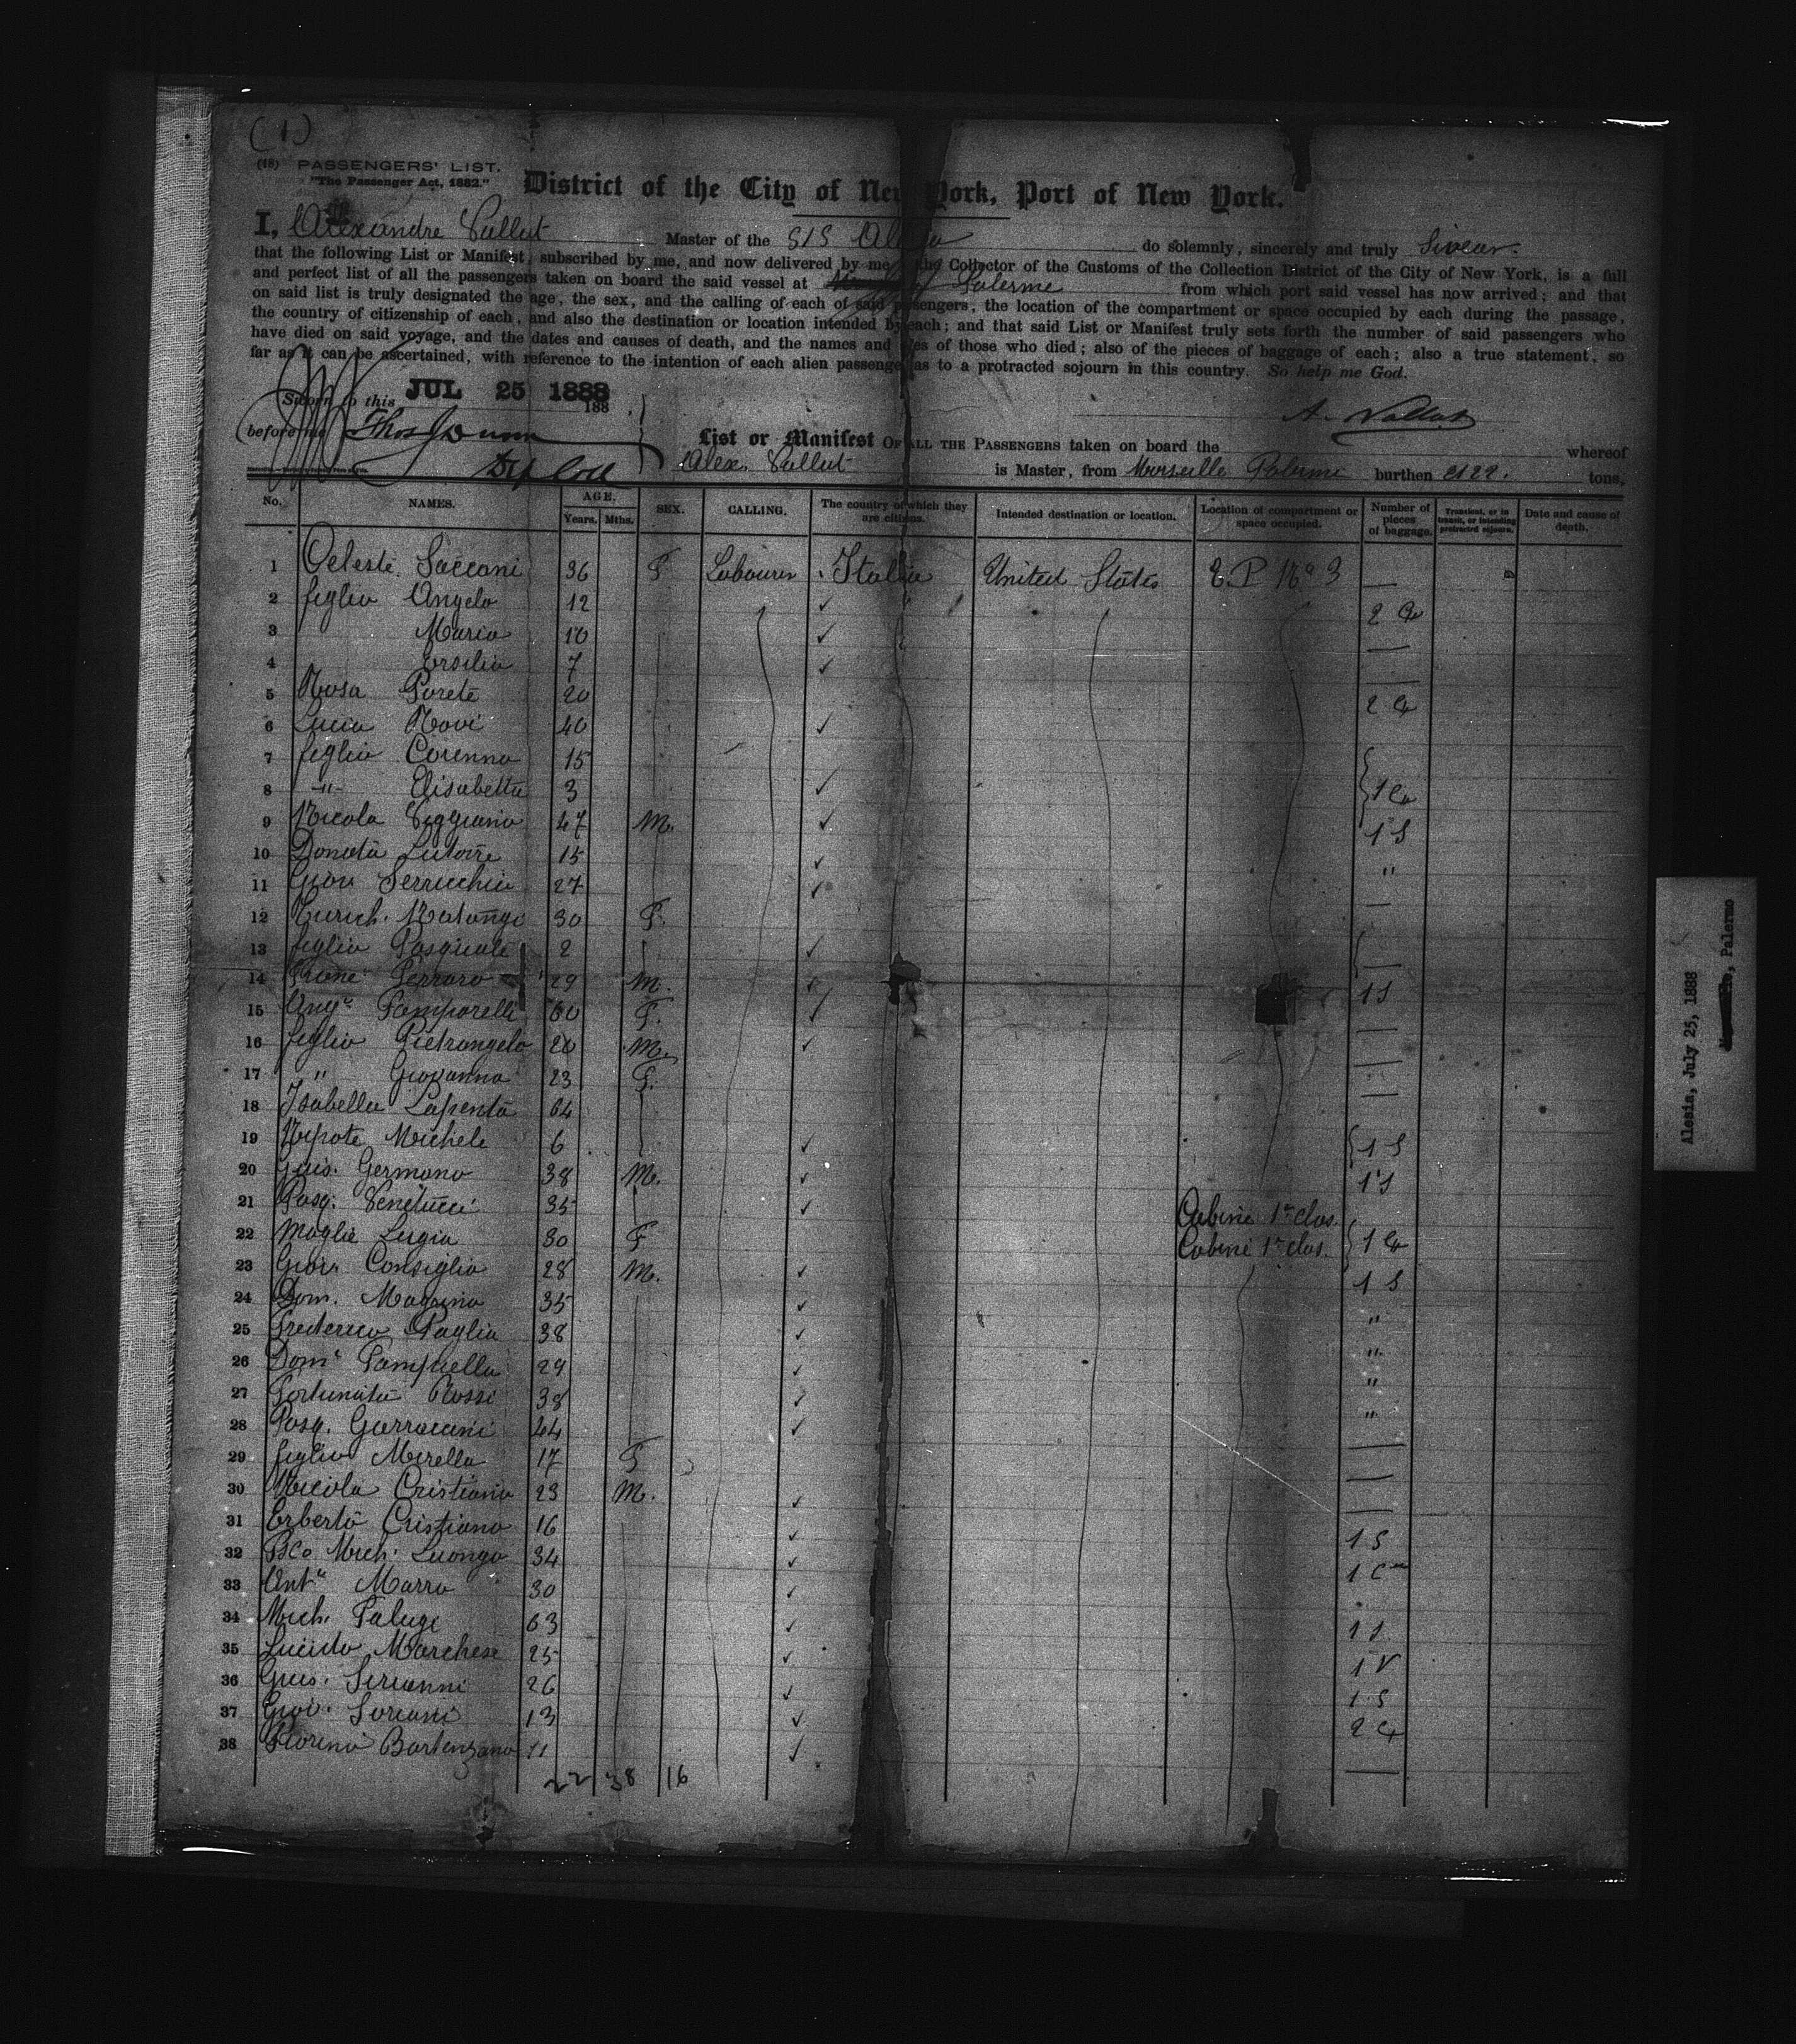 ( 1 )
(18) PASSENGERS' LIST.
"The Passenger Act, 1882."
District of the City of New York, Port of New York.
I, Alexandre Vallut Master of the S/S Alesia do solemnly, sincerely and truly Swear.
that the following List or Manifest, subscribed by me, and now delivered by me the Collector of the Customs of the Collection District of the City of New York, is a full
and perfect list of all the passengers taken on board the said vessel at Palerme from which port said vessel has now arrived; and that
on said list is truly designated the age, the sex, and the calling of each of said passengers, the location of the compartment or space occupied by each during the passage,
the country of citizenship of each, and also the destination or location intended by each; and that said List or Manifest truly sets forth the number of said passengers who
have died on said voyage, and the dates and causes of death, and the names and ages of those who died; also of the pieces of baggage of each; also a true statement, so
far as it can be ascertained, with reference to the intention of each alien passenger as to a protracted sojourn in this country. So help me God.
Sworn to this JUL 25 1888
188
A. Vallut
before me Thos J Dunn
List or Manifest OF ALL THE PASSENGERS taken on board the whereof
Dep Coll
Alex. Vallut is Master, from Marseille Palerme burthen 2122. tons,
No. NAMES. AGE. Years. Mths. SEX. CALLING. The country of which they are citizens. Intended destination or location. Location of compartment or space occupied. Number of pieces of baggage. Transient, or in transit, or intending protracted sojourn. Date and cause of death.
1 Celeste Saccani 36 F Labourer Italia United States E.P No 3 —
2 figlio Angelo 12 ✓ 2 Ca
3 Maria 10 ✓ —
4 Ersilia 7 ✓ —
5 Rosa Porete 20 2 Ca
6 Lucia Novi 40 ✓
7 figlia Corenna 15
8 -"- Elisabetta 3 ✓ 1 Ca
9 Nicola Viggiano 47 M. ✓ 1 S
10 Donato 15 ✓ "
11 Giov Serricchio 27 ✓
12 30 F. —
13 figlio Pasquale 2 ✓ —
14 Ferraro 29 M. ✓ 1 S
15 Ang. Pamporelli 60 F. ✓
16 figlio Pietrangelo 20 M. ✓ —
17 " Giovanna 23 F. —
18 Isabella Lapenta 64 —
19 Nipote Michele 6 ✓ 1 S
20 Guis. Germano 38 M. ✓ 1 S
21 Pasq. Venetucci 35 ✓ Cabine 1re clas.
22 Moglie Luigia 30 F Cabine 1re clas. 1 Ca
23 Giov. Consiglio 28 M. ✓ 1 S
24 Dom. Magrino 35 ✓ "
25 Frederico Paglia 38 ✓ "
26 Domo Pampiella 29 ✓ "
27 Fortunato Rossi 38 ✓ "
28 Pasq. Garraccini 44 ✓ —
29 figlia Mirella 17 F —
30 Nicola Cristiano 23 M. ✓ —
31 Erberto Cristiano 16 ✓ 1 S
32 Mich. Luongo 34 ✓ 1 Ca
33 Anto Marra 30 ✓
34 Mich. Falugi 63 ✓ 1 S
35 Lucido Marchese 25 ✓ 1 V
36 Guis. Serianni 26 ✓ 1 S
37 Giov. Soriani 13 ✓ 2 Ca
38 Fiorino 11 ✓ —
22 38 16
Alesia, July 25, 1888
Palermo